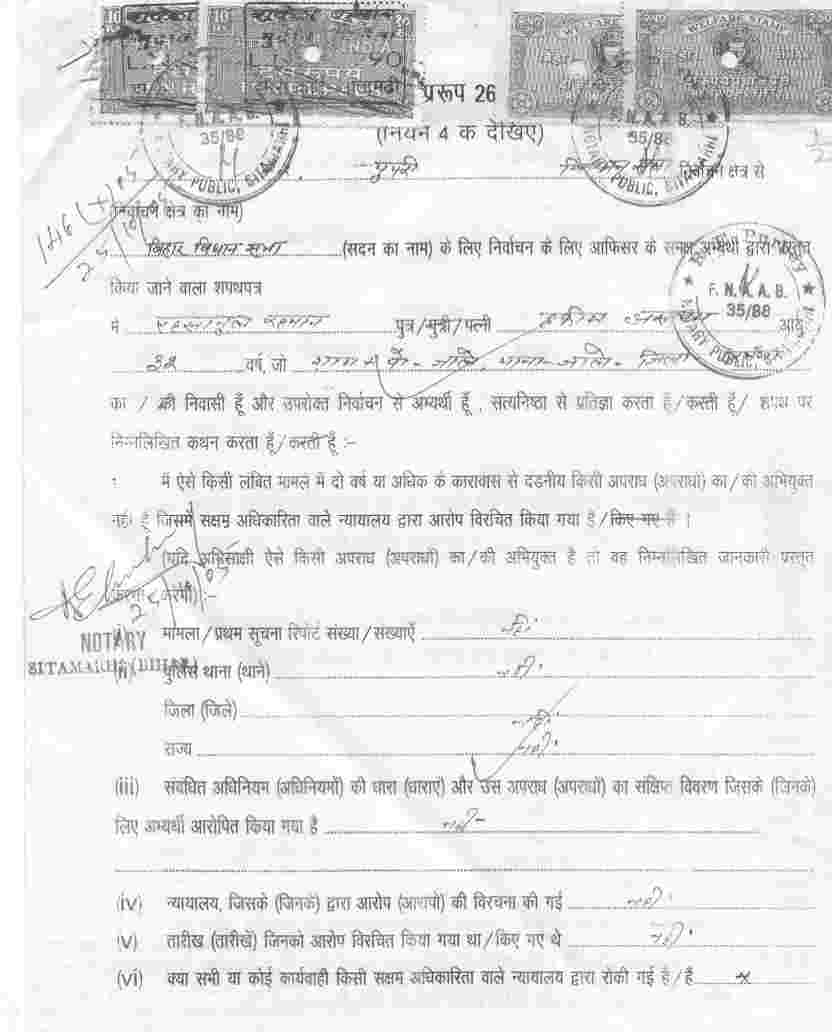 प्ररूप 26
(नियम 4 क देखिए)
पुपरी निर्वाचन क्षेत्र से
(निर्वाचन क्षेत्र का नाम)
बिहार विधान सभा (सदन का नाम) के लिए निर्वाचन के लिए आफिसर के समक्ष अभ्यर्थी द्वारा प्रस्तुत
किया जाने वाला शपथपत्र
मैं रहमान पुत्र/पुत्री/पत्नी आयु
32 वर्ष, जो जिला
का / की निवासी हूँ और उपरोक्त निर्वाचन से अभ्यर्थी हूँ , सत्यनिष्ठा से प्रतिज्ञा करता हूँ/करती हूँ/ शपथ पर
निम्नलिखित कथन करता हूँ/करती हूँ :-
मैं ऐसे किसी लंबित मामले में दो वर्ष या अधिक के कारावास से दंडनीय किसी अपराध (अपराधों) का/की अभियुक्त
नहीं हूँ जिसमें सक्षम अधिकारिता वाले न्यायालय द्वारा आरोप विरचित किया गया है/किए गए हैं ।
(यदि अभिसाक्षी ऐसे किसी अपराध (अपराधों) का/की अभियुक्त है तो वह निम्नलिखित जानकारी प्रस्तुत
करेगा/करेगी):-
मामला/प्रथम सूचना रिपोर्ट संख्या/संख्याएँ नहीं
(ii) पुलिस थाना (थाने) नहीं
जिला (जिले) नहीं
राज्य नहीं
(iii) संबंधित अधिनियम (अधिनियमों) की धारा (धाराएं) और उस अपराध (अपराधों) का संक्षिप्त विवरण जिसके (जिनके)
लिए अभ्यर्थी आरोपित किया गया है नहीं
(iv) न्यायालय, जिसके (जिनके) द्वारा आरोप (आरोपों) की विरचना की गई नहीं
(v) तारीख (तारीखें) जिनको आरोप विरचित किया गया था/किए गए थे नहीं
(vi) क्या सभी या कोई कार्यवाही किसी सक्षम अधिकारिता वाले न्यायालय द्वारा रोकी गई है/हैं x
WELFARE STAMP
WELFARE STAMP
INDIA
F.N.A.A.B.
35/88
NOTARY PUBLIC, SITAMARHI
F.N.A.A.B.
35/88
NOTARY PUBLIC, SITAMARHI
F.N.A.A.B.
35/88
NOTARY PUBLIC
NOTARY
SITAMARHI (BIHAR)